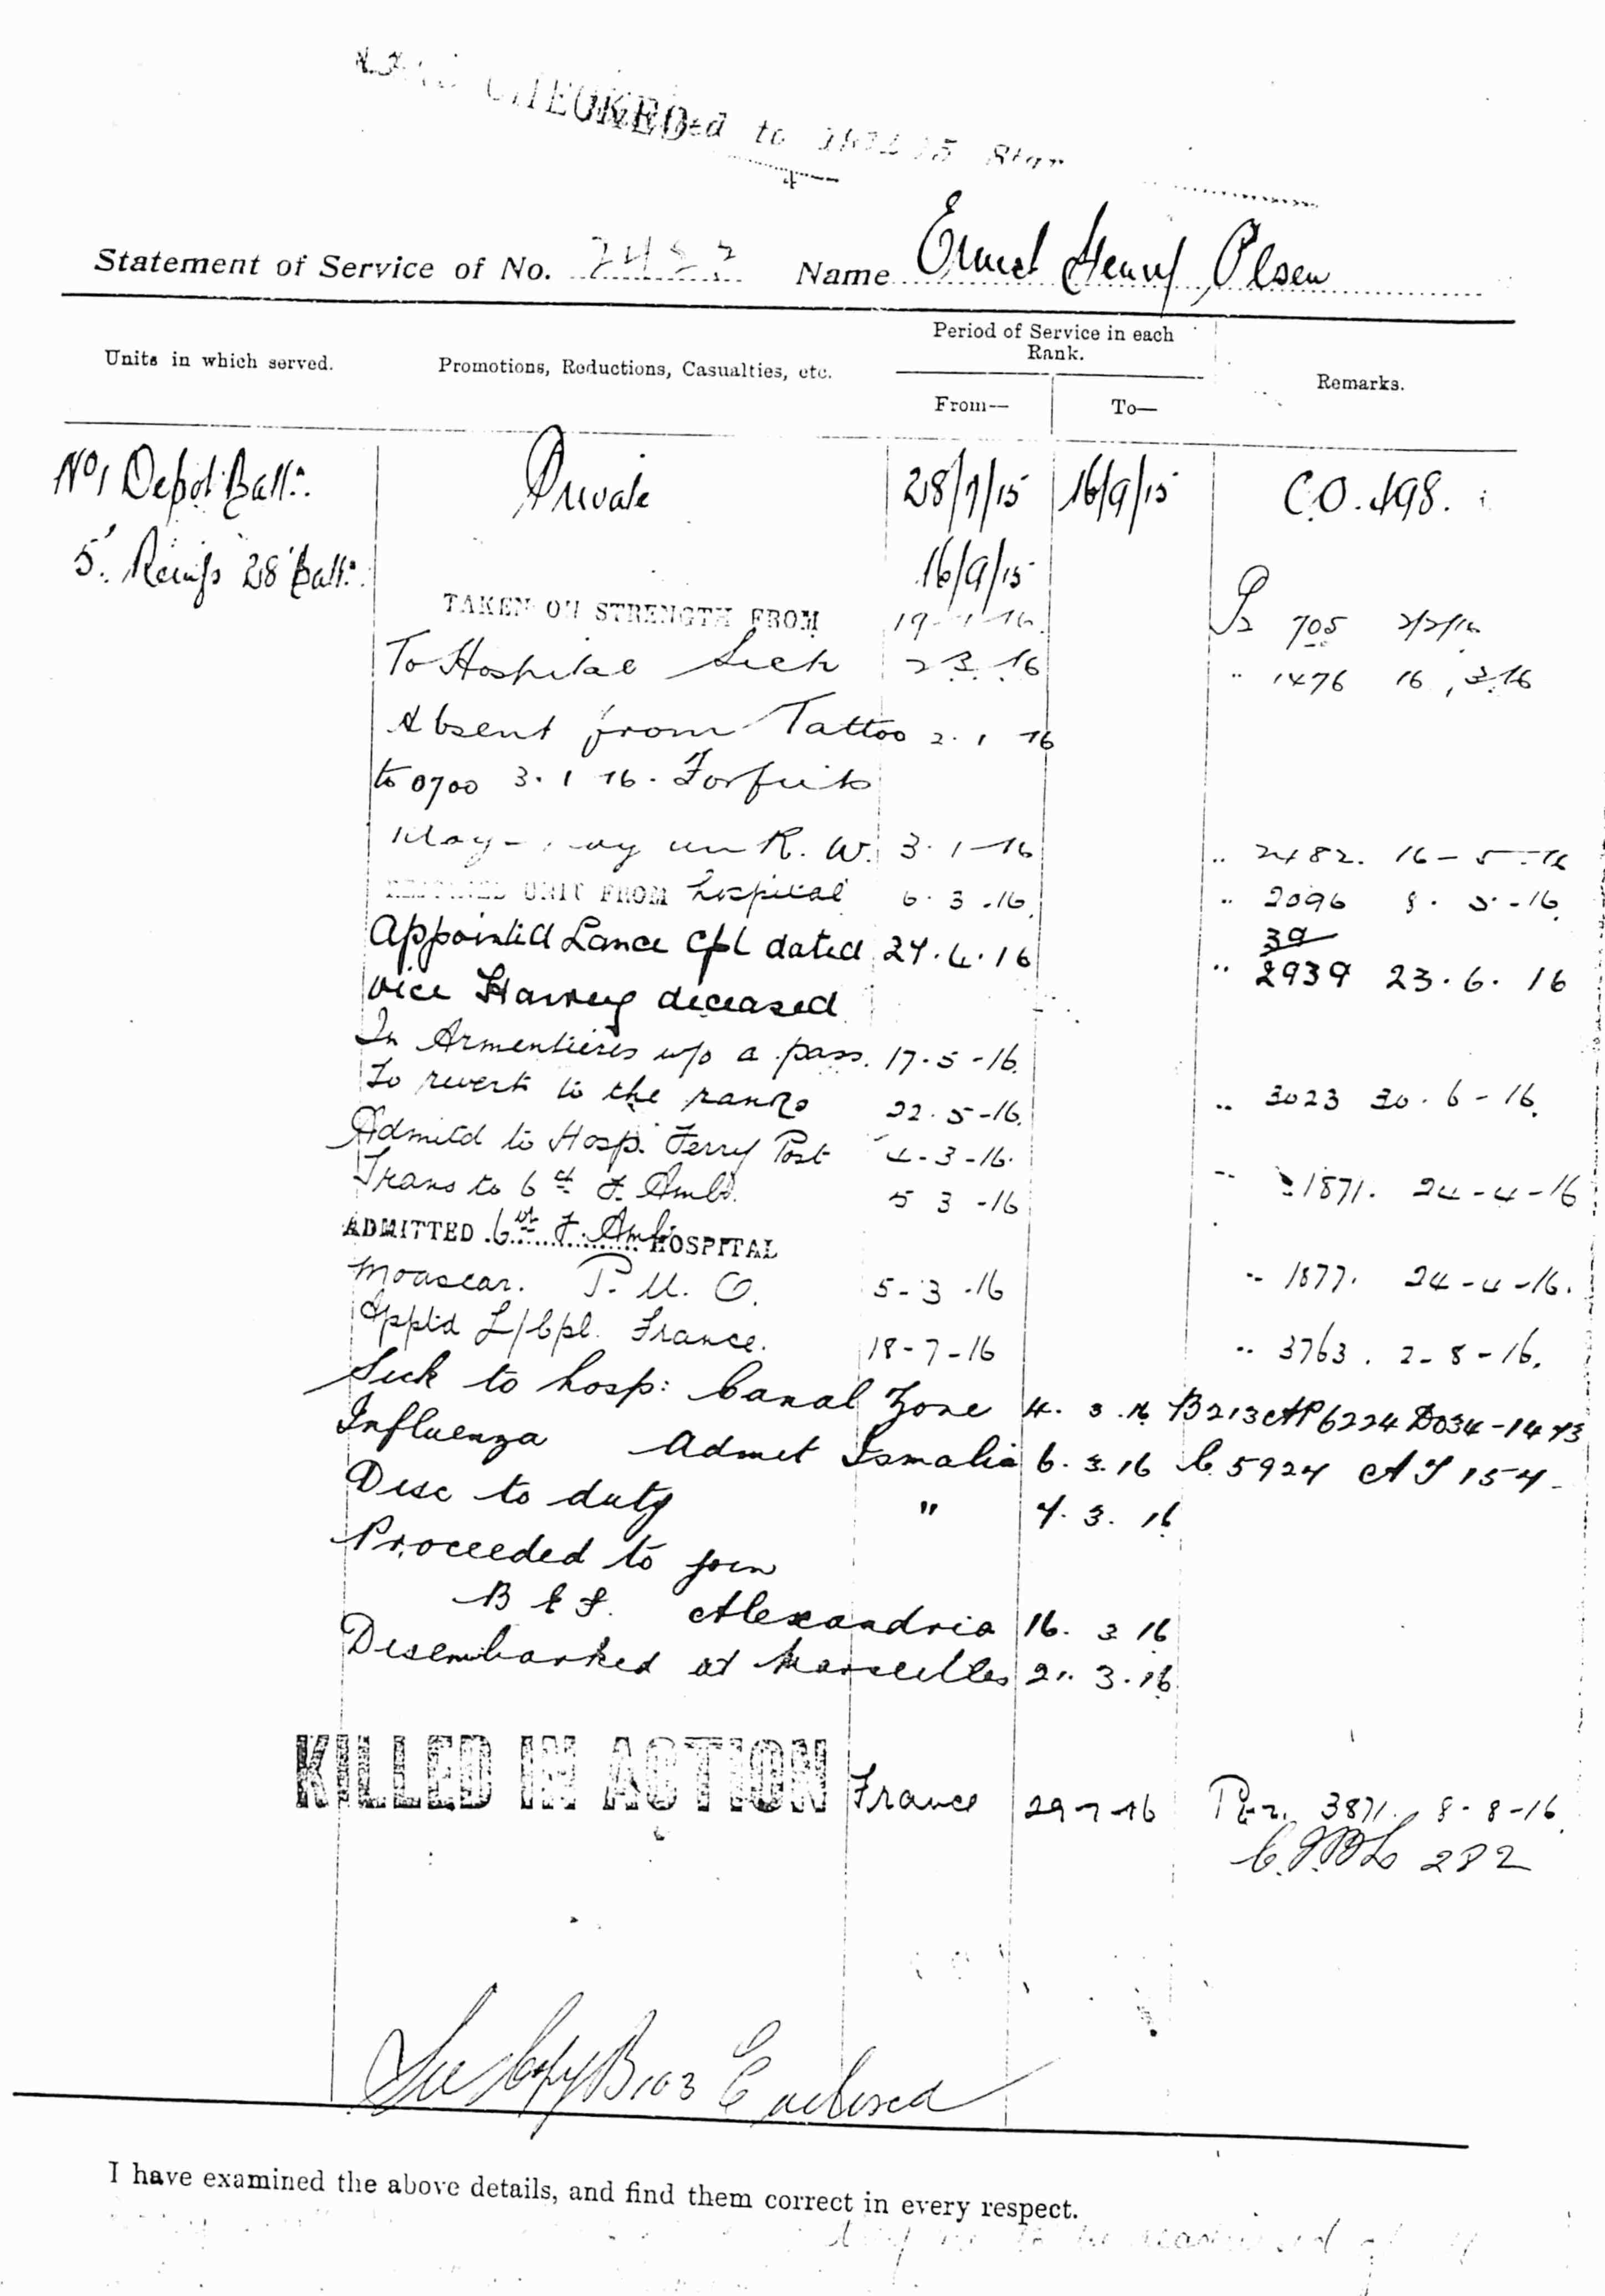 CHECKED
to 1914/15 Star
Statement of Service of No. Name Ernest Henry Olsen
Units in which served. Promotions, Reductions, Casualties, etc. Period of Service in each Rank. Remarks.
From— To—
No 1 Depot Batt: Private 28/7/15 16/9/15 C.O. 498.
5. Reinfs 28 Batt: 16/9/15
TAKEN ON STRENGTH FROM 19-1-16. 705 2/2/16
To Hospital Sick 2 3. 16 " 1476 16.3.16
Absent from Tattoo 2. 1 16
to 0700 3. 1 16. Forfeits
R. W. 3. 1-16 .. 2482. 16-5-16
UNIT FROM hospital 6. 3.16. .. 2096 8. 5-16.
39
Appointed Lance Cpl dated 27.4.16 .. 2939 23.6.16
vice Harvey deceased
In Armentieres w/o a pass. 17-5-16.
To revert to the ranks 22.5-16. .. 3023 30.6-16.
Admitd to Hosp. Ferry Post 4-3-16.
Trans to 6th F. Amb. 5 3-16 1871. 24-4-16
ADMITTED 6th F. Amb HOSPITAL
Moascar. P. U. O. 5-3-16 .. 1877. 24-4-16.
Apptd L/Cpl. France. 18-7-16 .. 3763. 2-8-16.
Sick to hosp: Canal Zone 4. 3.16 B213 AP6224 DO34-1473
Influenza Admit Ismalia 6. 3.16 C. 5924
Disc to duty " 7. 3. 16
Proceeded to join
B E F. Alexandria 16. 3 16
Disembarked at Marseilles 21. 3.16.
KILLED IN ACTION France 29-7-16 3871. 8-8-16.
282
See Copy B103 Enclosed
I have examined the above details, and find them correct in every respect.